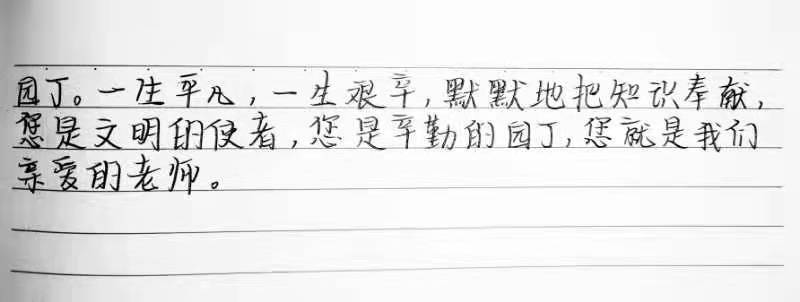 园丁。一生平凡,一生艰辛,默默地把知识奉献,
您是文明的使者,您是辛勤的园丁,您就是我们
亲爱的老师。